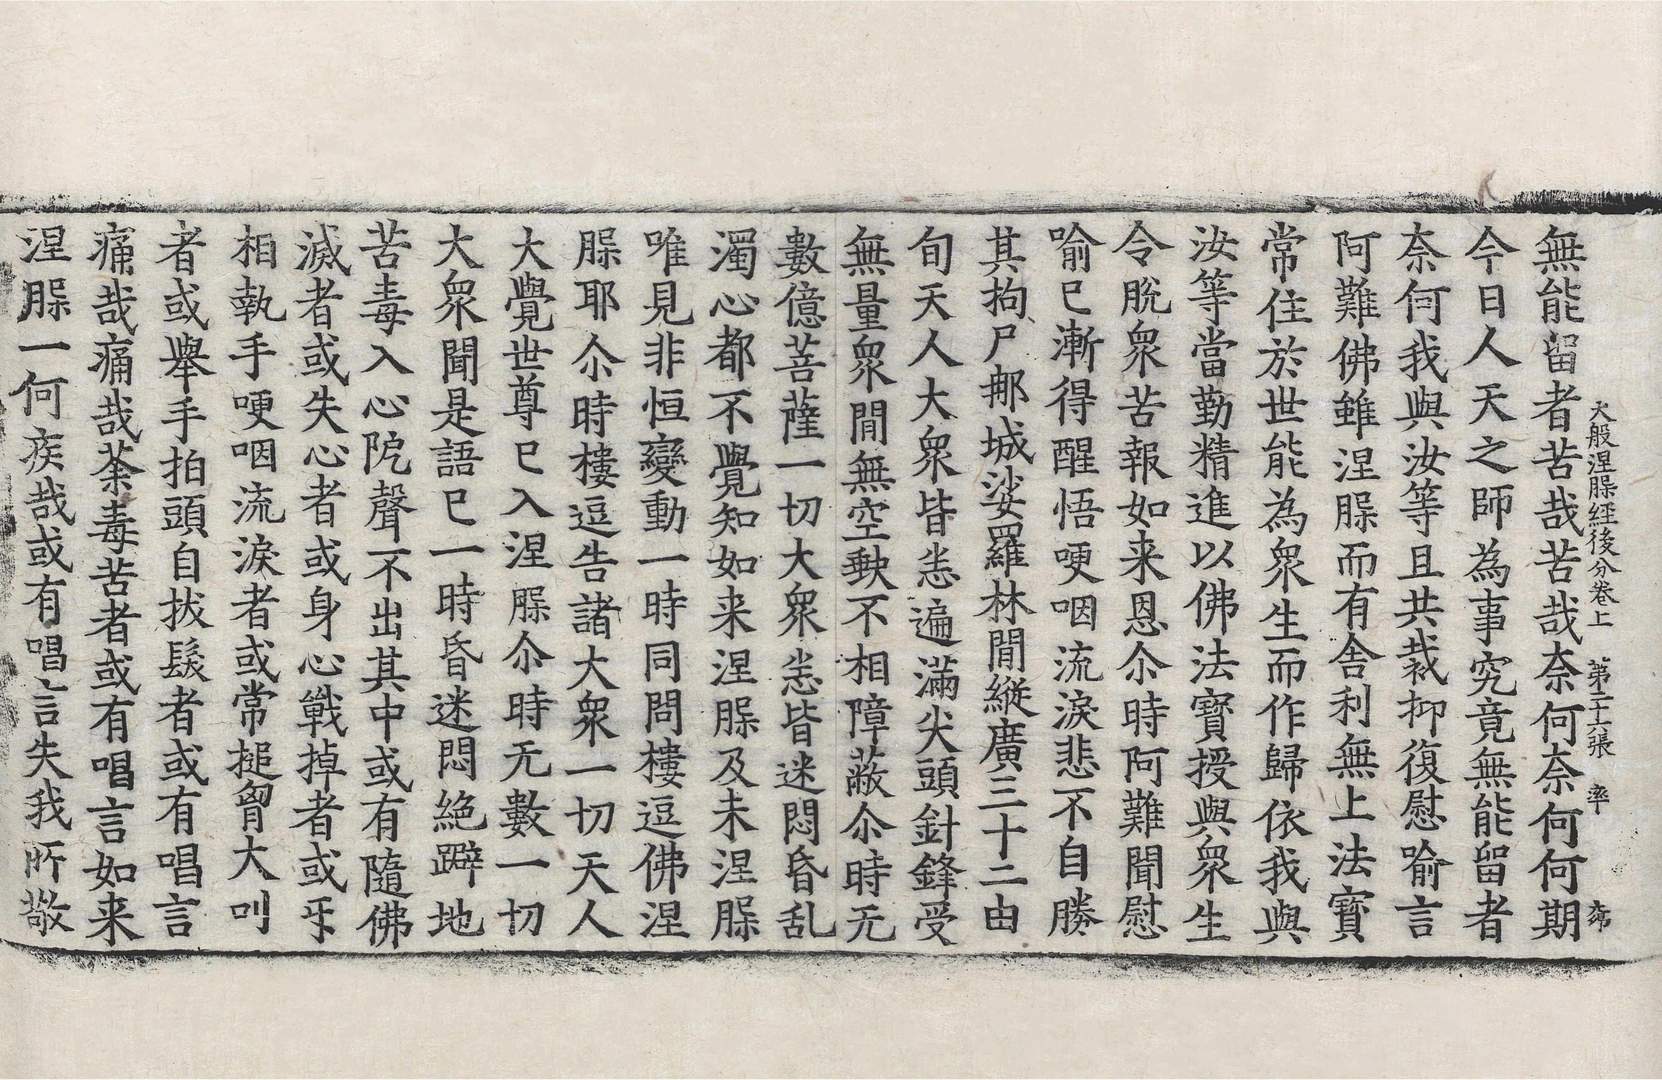 大般涅槃經後分卷上 第二十六張 率
無能留者苦哉苦哉奈何奈何何期
今日人天之師為事究竟無能留者
奈何我與汝等且共裁抑復慰喻言
阿難佛雖涅槃而有舍利無上法寶
常住於世能為眾生而作歸依我與
汝等當勤精進以佛法寶授與眾生
令脫眾苦報如来恩尒時阿難聞慰
喻已漸得醒悟哽咽流淚悲不自勝
其拘尸那城娑羅林間縱廣三十二由
旬天人大眾皆悉遍滿尖頭針鋒受
無量眾間無空缺不相障蔽尒時无
數億菩薩一切大眾悉皆迷悶昏乱
濁心都不覺知如来涅槃及未涅槃
唯見非恒變動一時同問樓逗佛涅
槃耶尒時樓逗告諸大眾一切天人
大覺世尊已入涅槃尒時无數一切
大眾聞是語已一時昏迷悶絶躃地
苦毒入心阸聲不出其中或有隨佛
滅者或失心者或身心戰掉者或𠄔
相執手哽咽流淚者或常搥胷大叫
者或舉手拍頭自拔髮者或有唱言
痛哉痛哉荼毒苦者或有唱言如来
涅槃一何疾哉或有唱言失我所敬